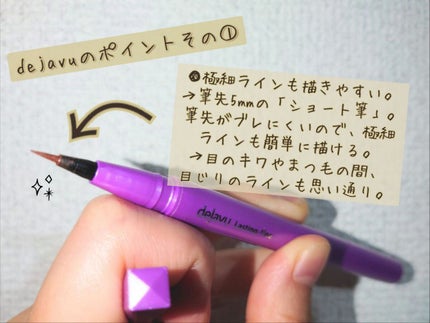 dejavuのポイントその①
㊙極細ラインも描きやすい。
→筆先5mmの「ショート筆」。
筆先がブレにくいので、極細
ラインも簡単に描ける。
→目のキワやまつ毛の間、
目じりのラインも思い通り。
dejavu Lasting-fine